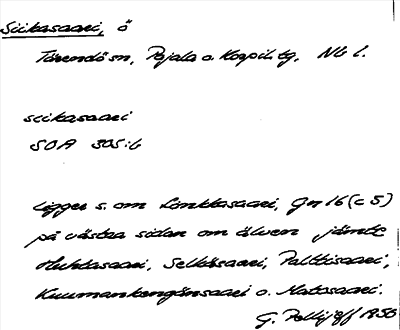 Siikasaari, ö
Tärendö sn, Pajala o. Korpil. tg, Nb l.
siikasaari
SOA 305:6
Ligger s. om Lönkkasaari, Gr 16 (c 5)
på västra sidan om älven jämte
Huhtasaari, Selkäsaari, Palttisaari,
Kuumankengänsaari o. Matosaari.
G. Pellijeff 1950